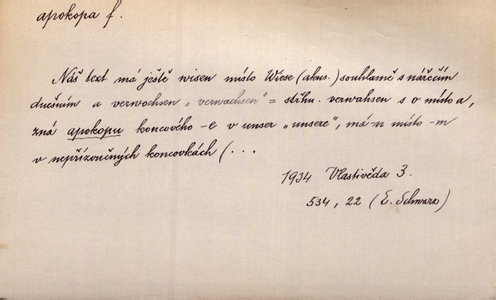 apokopa f.
Náš text má ještě wisen místo Wiese (akus.) souhlasně s nářečím
dnešním a verwochsen „verwachsen" = střhn. verwahsen s o místo a,
zná apokopu koncového -e v unser „unsere", má -n místo -m
v nepřízvučných koncovkách (...
1934 Vlastivěda 3.
534, 22 (E. Schwarz)